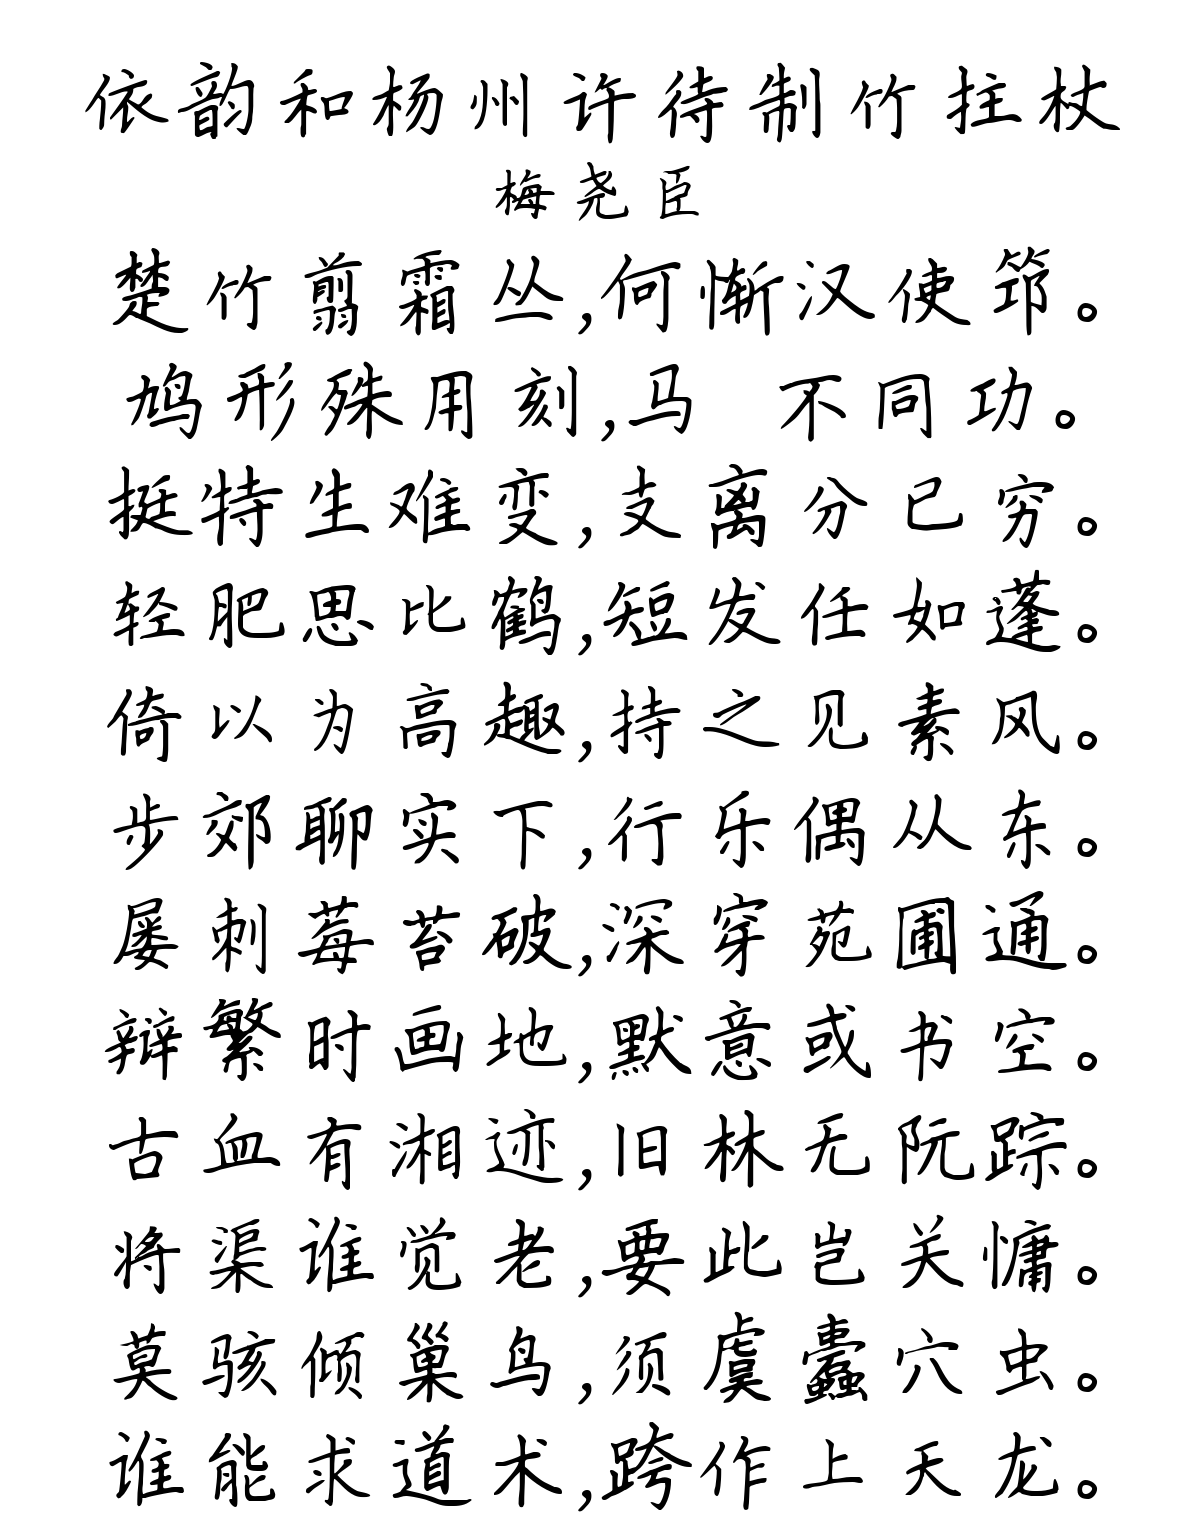 依韵和杨州许待制竹拄杖
梅尧臣
楚竹剪霜丛,何惭汉使筇。
鸠形殊用刻,马 不同功。
挺特生难变,支离分已穷。
轻肥思比鹤,短发任如蓬。
倚以为高趣,持之见素风。
步郊聊实下,行乐偶从东。
屡刺莓苔破,深穿苑圃通。
辩繁时画地,默意或书空。
古血有湘迹,旧林无阮踪。
将渠谁觉老,要此岂关慵。
莫骇倾巢鸟,须虞蠹穴虫。
谁能求道术,跨作上天龙。